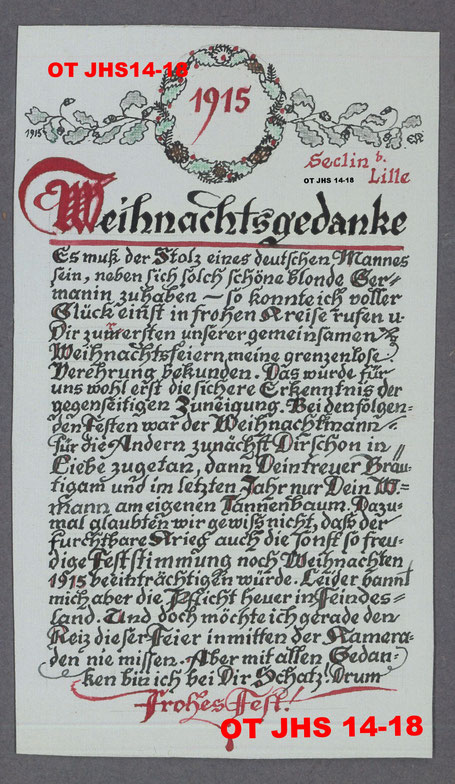 OT JHS14-18
1915
1915
ER
Seclin b.
Lille
OT JHS 14-18
Weihnachtsgedanke
Es muß der Stolz eines deutschen Mannes
sein, neben sich solch schöne blonde Ger-
manin zu haben – so konnte ich voller
Glück einst in frohen Kreise rufen u.
Dir zum ersten unserer gemeinsamen
Weihnachtsfeiern meine grenzenlose
Verehrung bekunden. Das würde für
uns wohl erst die sichere Erkenntnis der
gegenseitigen Zuneigung. Bei den folgen-
den Festen war der Weihnachtsmann
für die Andern zunächst Dir schon in
Liebe zugetan, dann Dein treuer Bräu-
tigam und im letzten Jahr nur Dein W.-
mann am eigenen Tannenbaum. Dazu-
mal glaubten wir gewiss nicht, daß der
furchtbare Krieg auch die sonst so freu-
dige Feststimmung noch Weihnachten
1915 beeinträchtigen würde. Leider bannt
mich aber die Pflicht heuer in Feindes-
land. Und doch möchte ich gerade den
Reiz dieser Feier inmitten der Kamera-
den nie missen. Aber mit allen Gedan-
ken bin ich bei Dir Schatz! Drum
Frohes Fest!
OT JHS 14-18